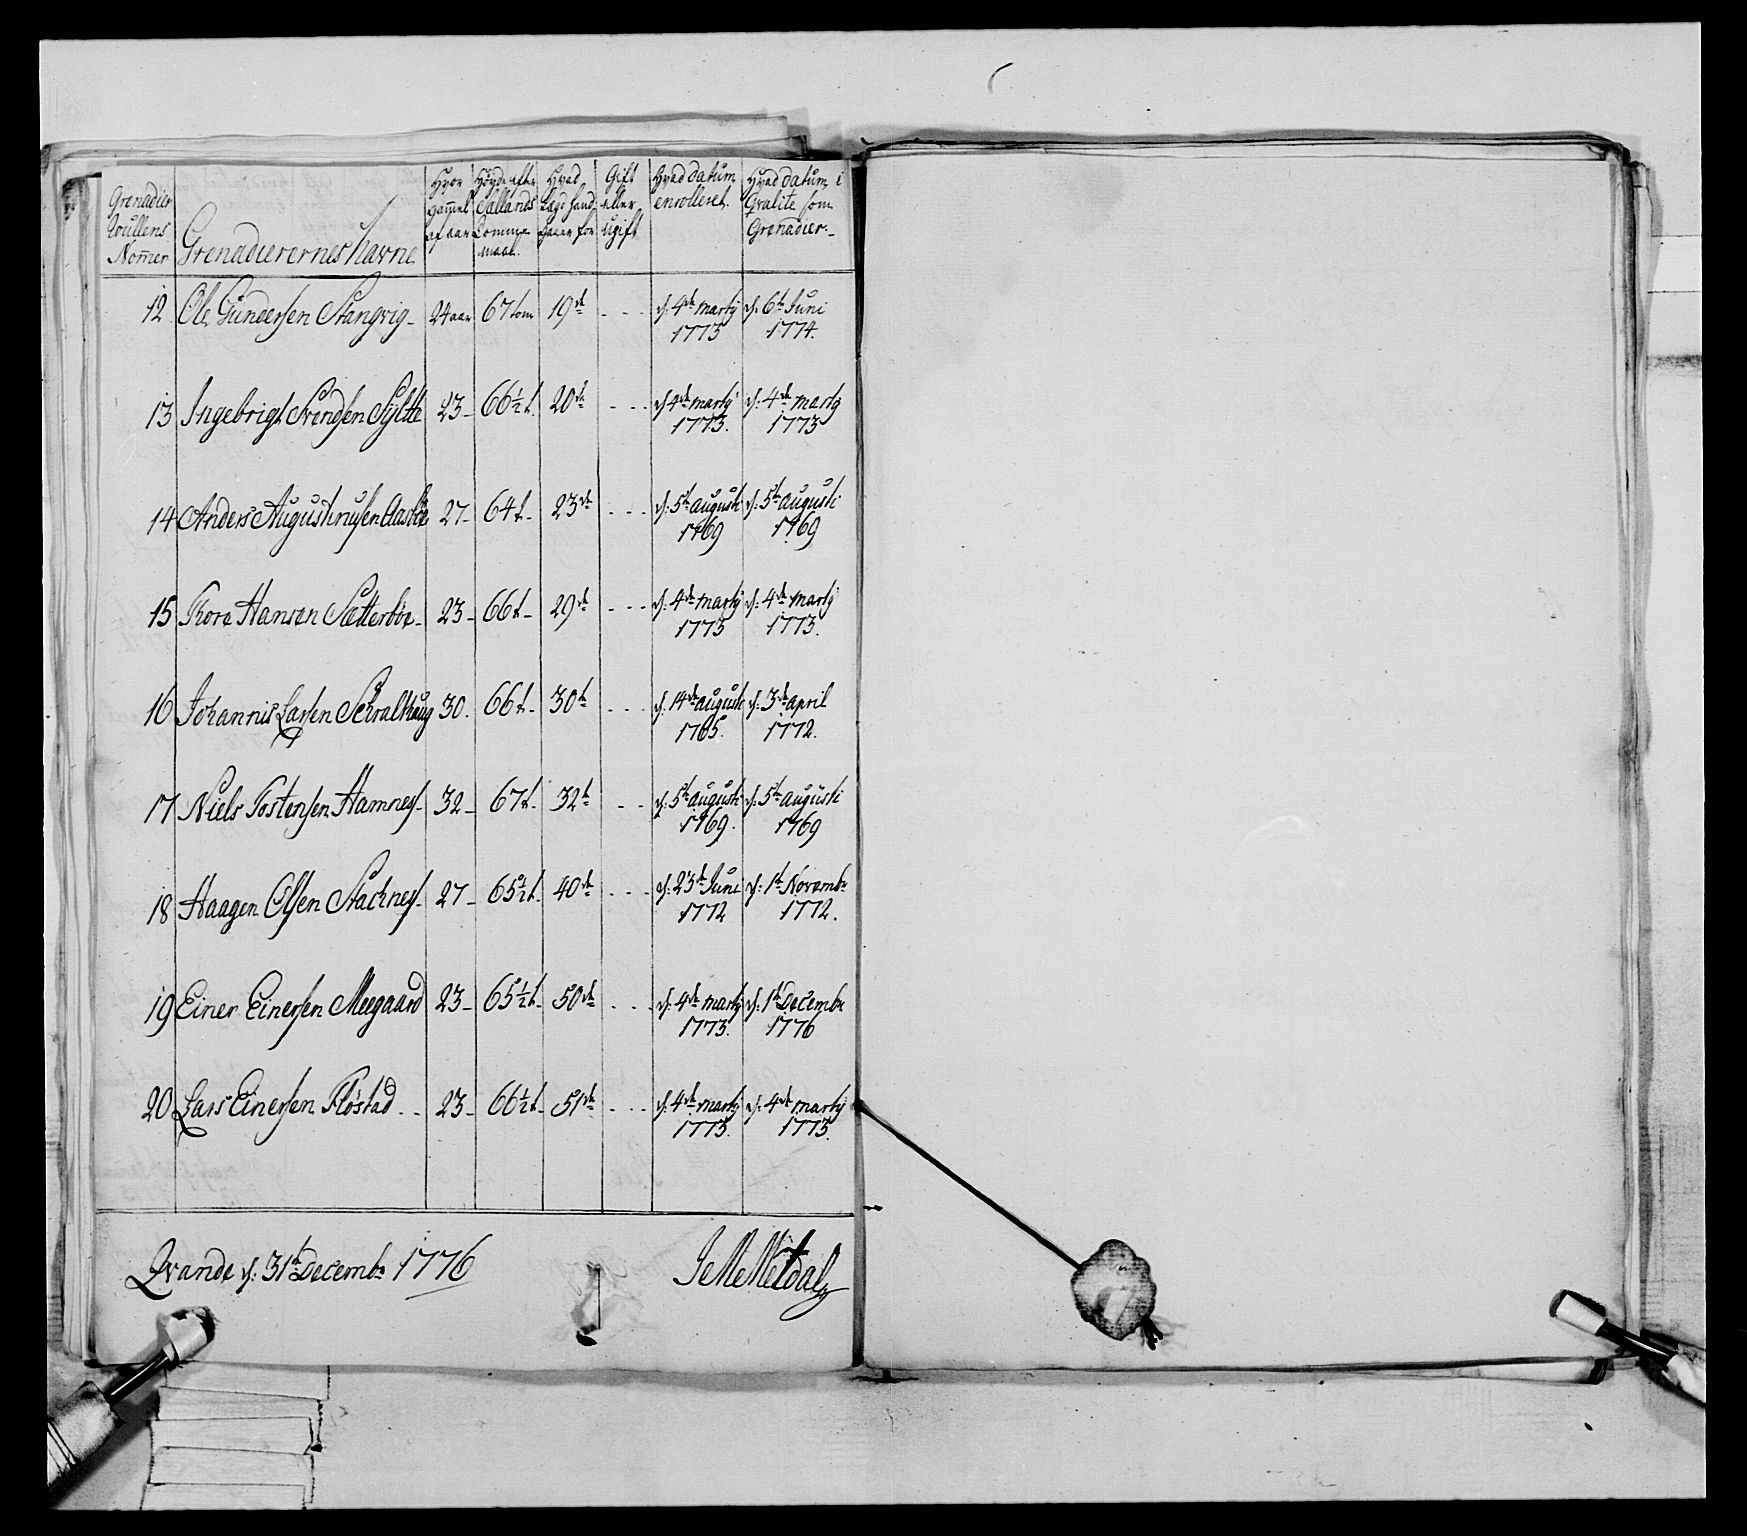 Grenadier Rullens Nom̅er | Grenadierernes Navne | Hvor gam̅el af aar | Høyde efter Sællands Tomme maal. | Hvad Lægd hand staaer for | Gift eller ugift | Hvad datum enrolleret. | Hvad datum i Qvalite som Grenadier.
12 Ole Gundersen Stangvig 24 aar 67 tom 19de - - - d: 4de marty 1773 d: 6te Juni 1774.
13 Ingebrigt Svendsen Sylte 23 66½ t. 20de - - - d: 4de marty 1773. d: 4de marty 1773
14 Anders Augustinusen 27 64 t 23de - - - d: 5te augusti 1769 d: 5te augusti 1769
15 Tore Hansen Sætterbøe 23 66 t 29de - - - d: 4de marty 1773 d: 4de marty 1773.
16 Johannis Larsen 30. 66 t 30te - - - d: 14de augusti 1765. d: 3de april 1772.
17 Niels Tostensen Hamnes 32 67 t 32te - - d: 5te augusti 1769. d: 5te augusti 1769
18 Haagen Olsen Stacknes 27 65½ t. 40de - - - d: 23de Juni 1772 d: 1te Novembr 1772.
19 Einer Einersen Meegaard 23 65½ t. 50de - - - d: 4de marty 1773. d: 1te Decembr 1776
20 Lars Einersen Fløstad 23 66½ t. 51de - - - d: 4de marty 1773. d: 4de marty 1773.
Qvande d: 31te Decembr 1776